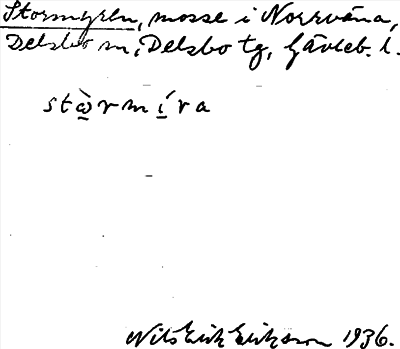 Stormyren, mosse i Norrväna,
Delsbo sn, Delsbo tg, Gävleb. l.
stὼrmíra
Nils Erik Eriksson 1936.